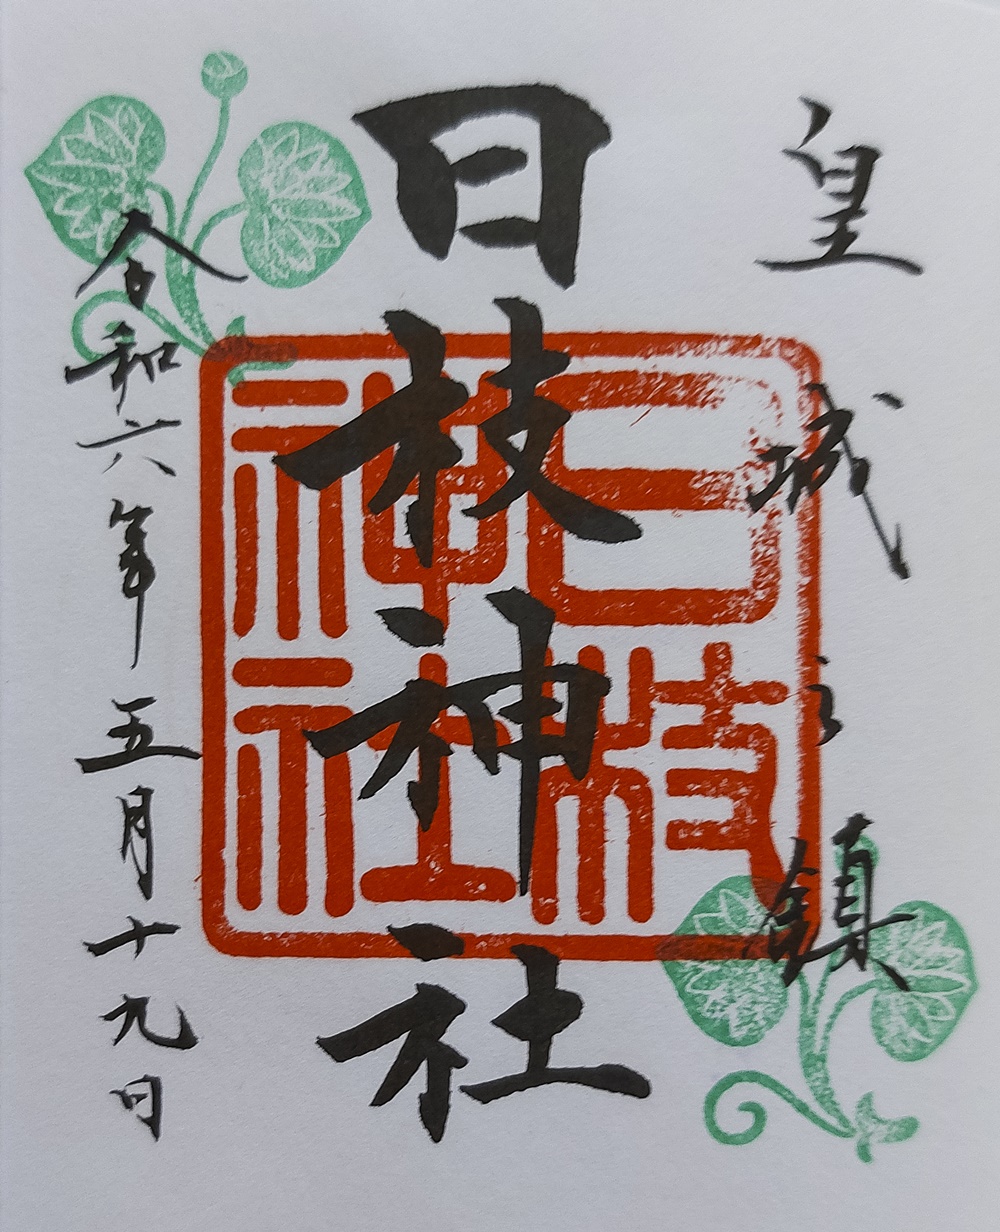 皇城之鎮
日枝神社
日枝
神社
令和六年五月十九日